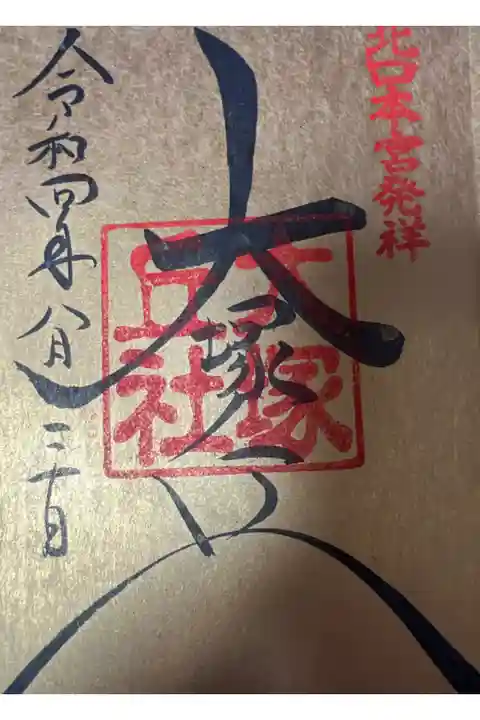 北口本宮発祥
大塚丘
大塚丘社
令和四年八月三十日